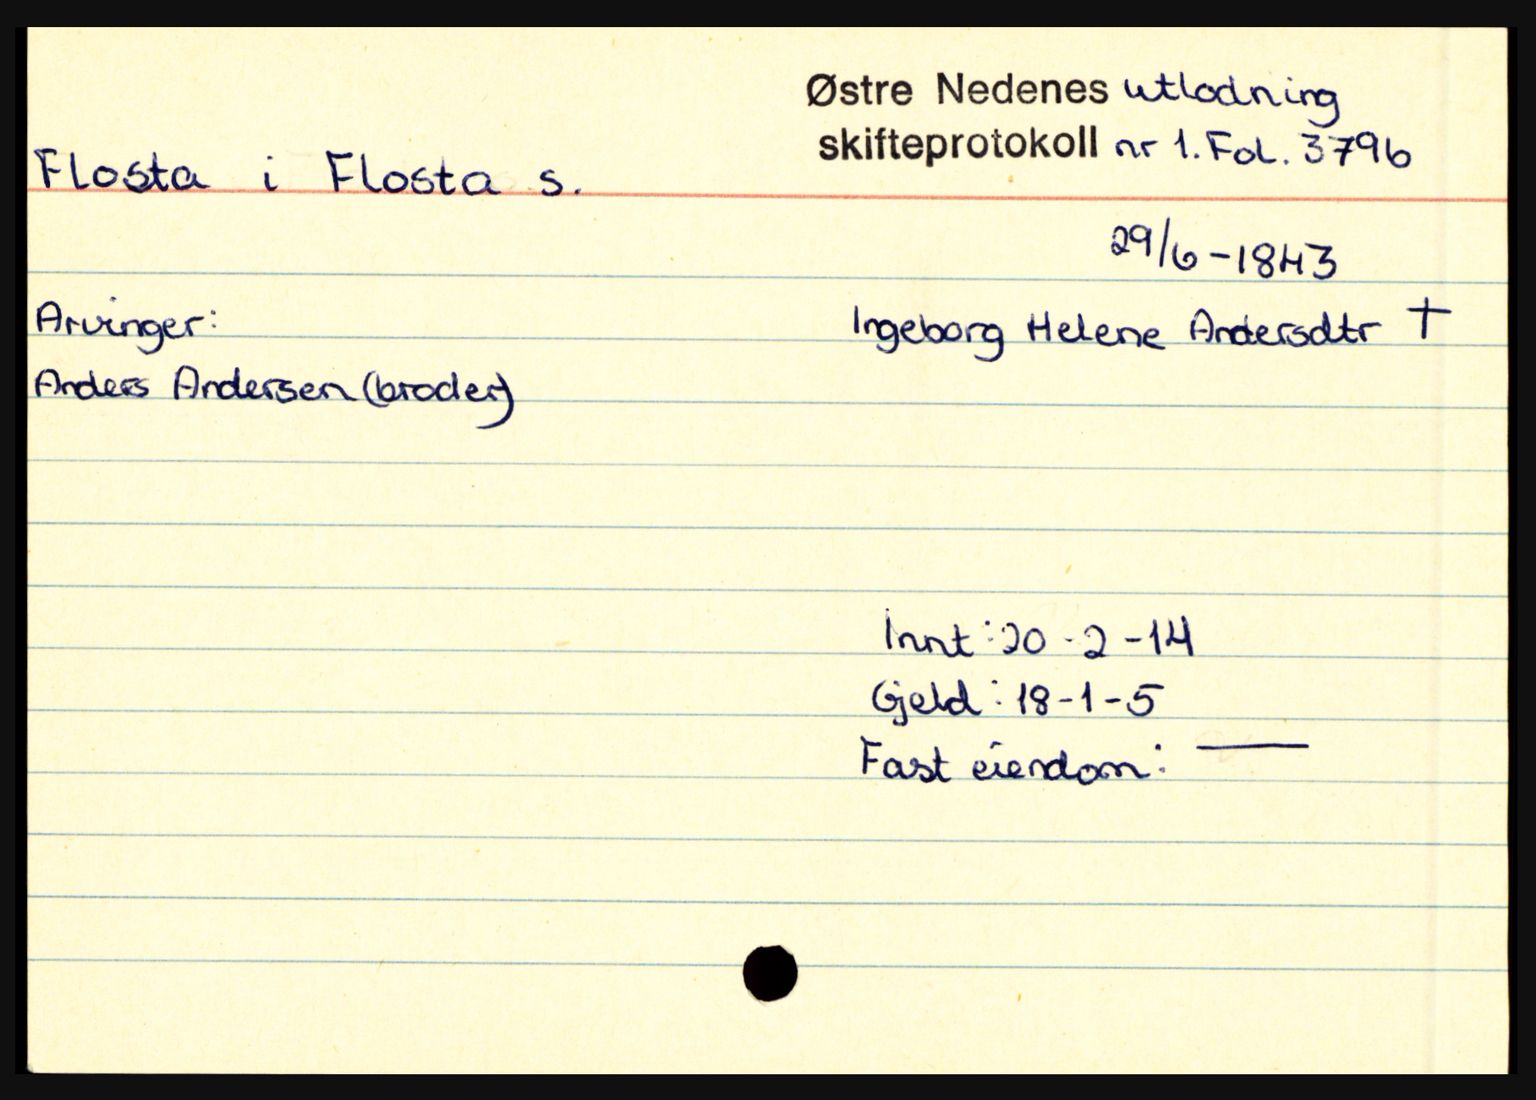 Østre Nedenes utlodning
skifteprotokoll nr 1. Fol. 379b
Flosta i Flosta s.
29/6-1843
Arvinger:
Ingeborg Helene Andersdtr †
Anders Andersen (broder)
Innt: 20-2-14
Gjeld: 18-1-5
Fast eiendom: —